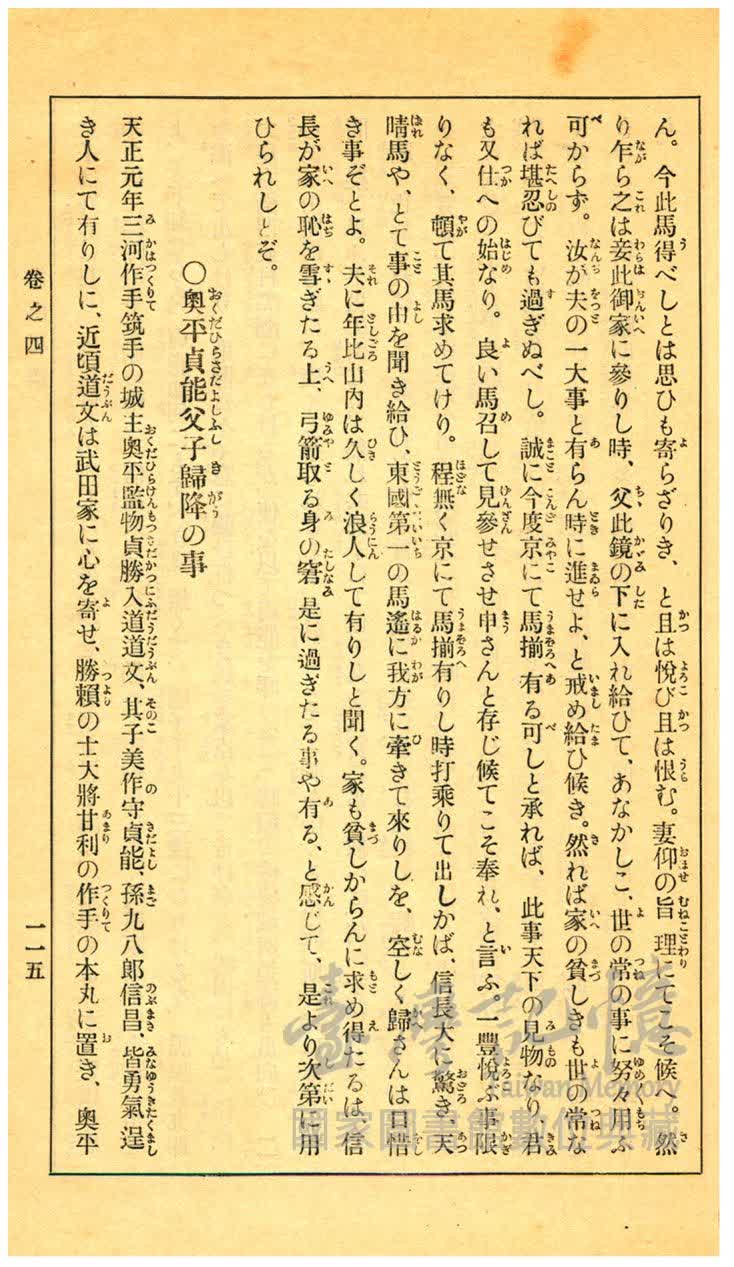 ん。今此馬得べしとは思ひも寄らざりき、と且は悅び且は恨む。妻仰の旨理にてこそ候へ。然
り乍ら之は妾此御家に參りし時、父此鏡の下に入れ給ひて、あなかしこ、世の常の事に努々用ふ
可からず。汝が夫の一大事と有らん時に進せよ、と戒め給ひ候き。然れば家の貧しきも世の常な
れば堪忍びても過ぎぬべし。誠に今度京にて馬揃有る可しと承れば、此事天下の見物なり、君
も又仕への始なり。良い馬召して見參せさせ申さんと存じ候てこそ奉れ、と言ふ。一豐悅ぶ事限
りなく、頓て其馬求めてけり。程無く京にて馬揃有りし時打乘りて出しかば、信長大に驚き、天
晴馬や、とて事の由を聞き給ひ、東國第一の馬遙に我方に牽きて來りしを、空しく歸さんは口惜
き事ぞとよ。夫に年比山內は久しく浪人して有りしと聞く。家も貧しからんに求め得たるは、信
長が家の恥を雪ぎたる上、弓箭取る身の窘是に過ぎたる事や有る、と感じて、是より次第に用
ひられしとぞ。
〇奧平貞能父子歸降の事
天正元年三河作手筑手の城主奧平監物貞勝入道道文、其子美作守貞能、孫九八郞信昌、皆勇氣逞
き人にて有りしに、近頃道文は武田家に心を寄せ、勝賴の士大將甘利の作手の本丸に置き、奧平
卷之四
一一五
臺灣記憶
Taiwan Memory
國家圖書館數位典藏